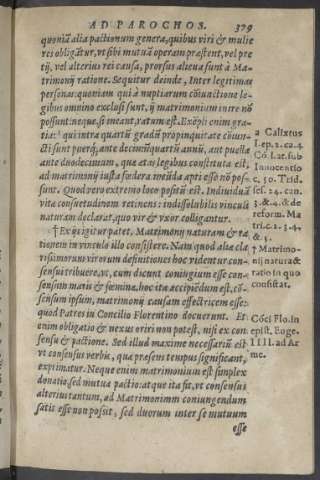 AD PAROCHOS. 379
quoniā alia pactionum genera, quibus viri & mulie
res obligātur, vt sibi mutuā operam præstent, vel pre
tij, vel alterius rei causa, prorsus aliena sunt à Ma
trimonij ratione. Sequitur deinde, Inter legitimas
personas: quoniam qui à nuptiarum cōiunctione le-
gibus omnino exclusi sunt, ij matrimonium inire nō
possunt: neque, si ineant, ratum est. Exēpli enim gra-
tia: ᵃ qui intra quartū gradū propinquitate cōiun-
cti sunt puerq́; ante decimūquartū annū, aut puella
ante duodecimum, quæ ætas legibus constituta est,
ad matrimonij iusta fœdera ineūda apti esse nō pos-
sunt. Quod vero extremo loco positū est. Indiuiduā
vitæ consuetudinem retinens: indissolubilis vinculi
naturam declarat, quo vir & vxor colligantur.
† Ex ijs igitur patet, Matrimonij naturam & ra
tionem in vinculo illo consistere. Nam quod aliæ cla
rissimorum virorum definitiones hoc videntur con-
sensui tribuere, vt, cum dicunt coniugium esse con-
sensum maris & fœminæ, hoc ita accipiēdum est, cō-
sensum ipsum, matrimonij causam effectricem esse:
quod Patres in Concilio Florentino docuerunt. Et-
enim obligatio & nexus oriri non potest, nisi ex con
sensu & pactione. Sed illud maxime necessariū est
vt consensus verbis, quæ præsens tempus significant,
exprimatur. Neque enim matrimonium est simplex
donatio, sed mutua pactio: atque ita fit, vt consensus
alterius tantum, ad Matrimonium coniungendum
satis esse non possit, sed duorum inter se mutuum
esse
a Calixtus
1. ep. 2. ca. 4.
Cō. Lat. sub
Innocentio
c. 50. Trid.
ses. 24. can.
3. & 4. & de
reform. Ma
tri. c. 2. 3. 4.
& 5.
† Matrimo-
nij natura &
ratio in quo
consistat.
Cōci Flo. in
epist. Euge.
IIII. ad Ar
me.